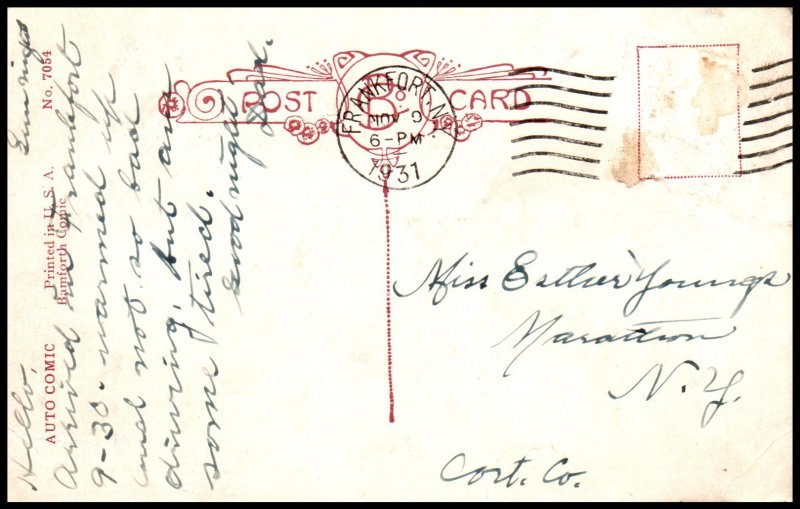 POST CARD
B
FRANKFORT, N.Y.
NOV 9
6-PM
1931
AUTO COMIC Printed in U. S. A. No. 7054
Bamforth Comic
Hello,
Arrived in Frankfort
9-30. warmed up
and not so bad
driving, but am
some tired.
Good night
Miss Esther Youngs
Marathon
N.Y.
Cort. Co.